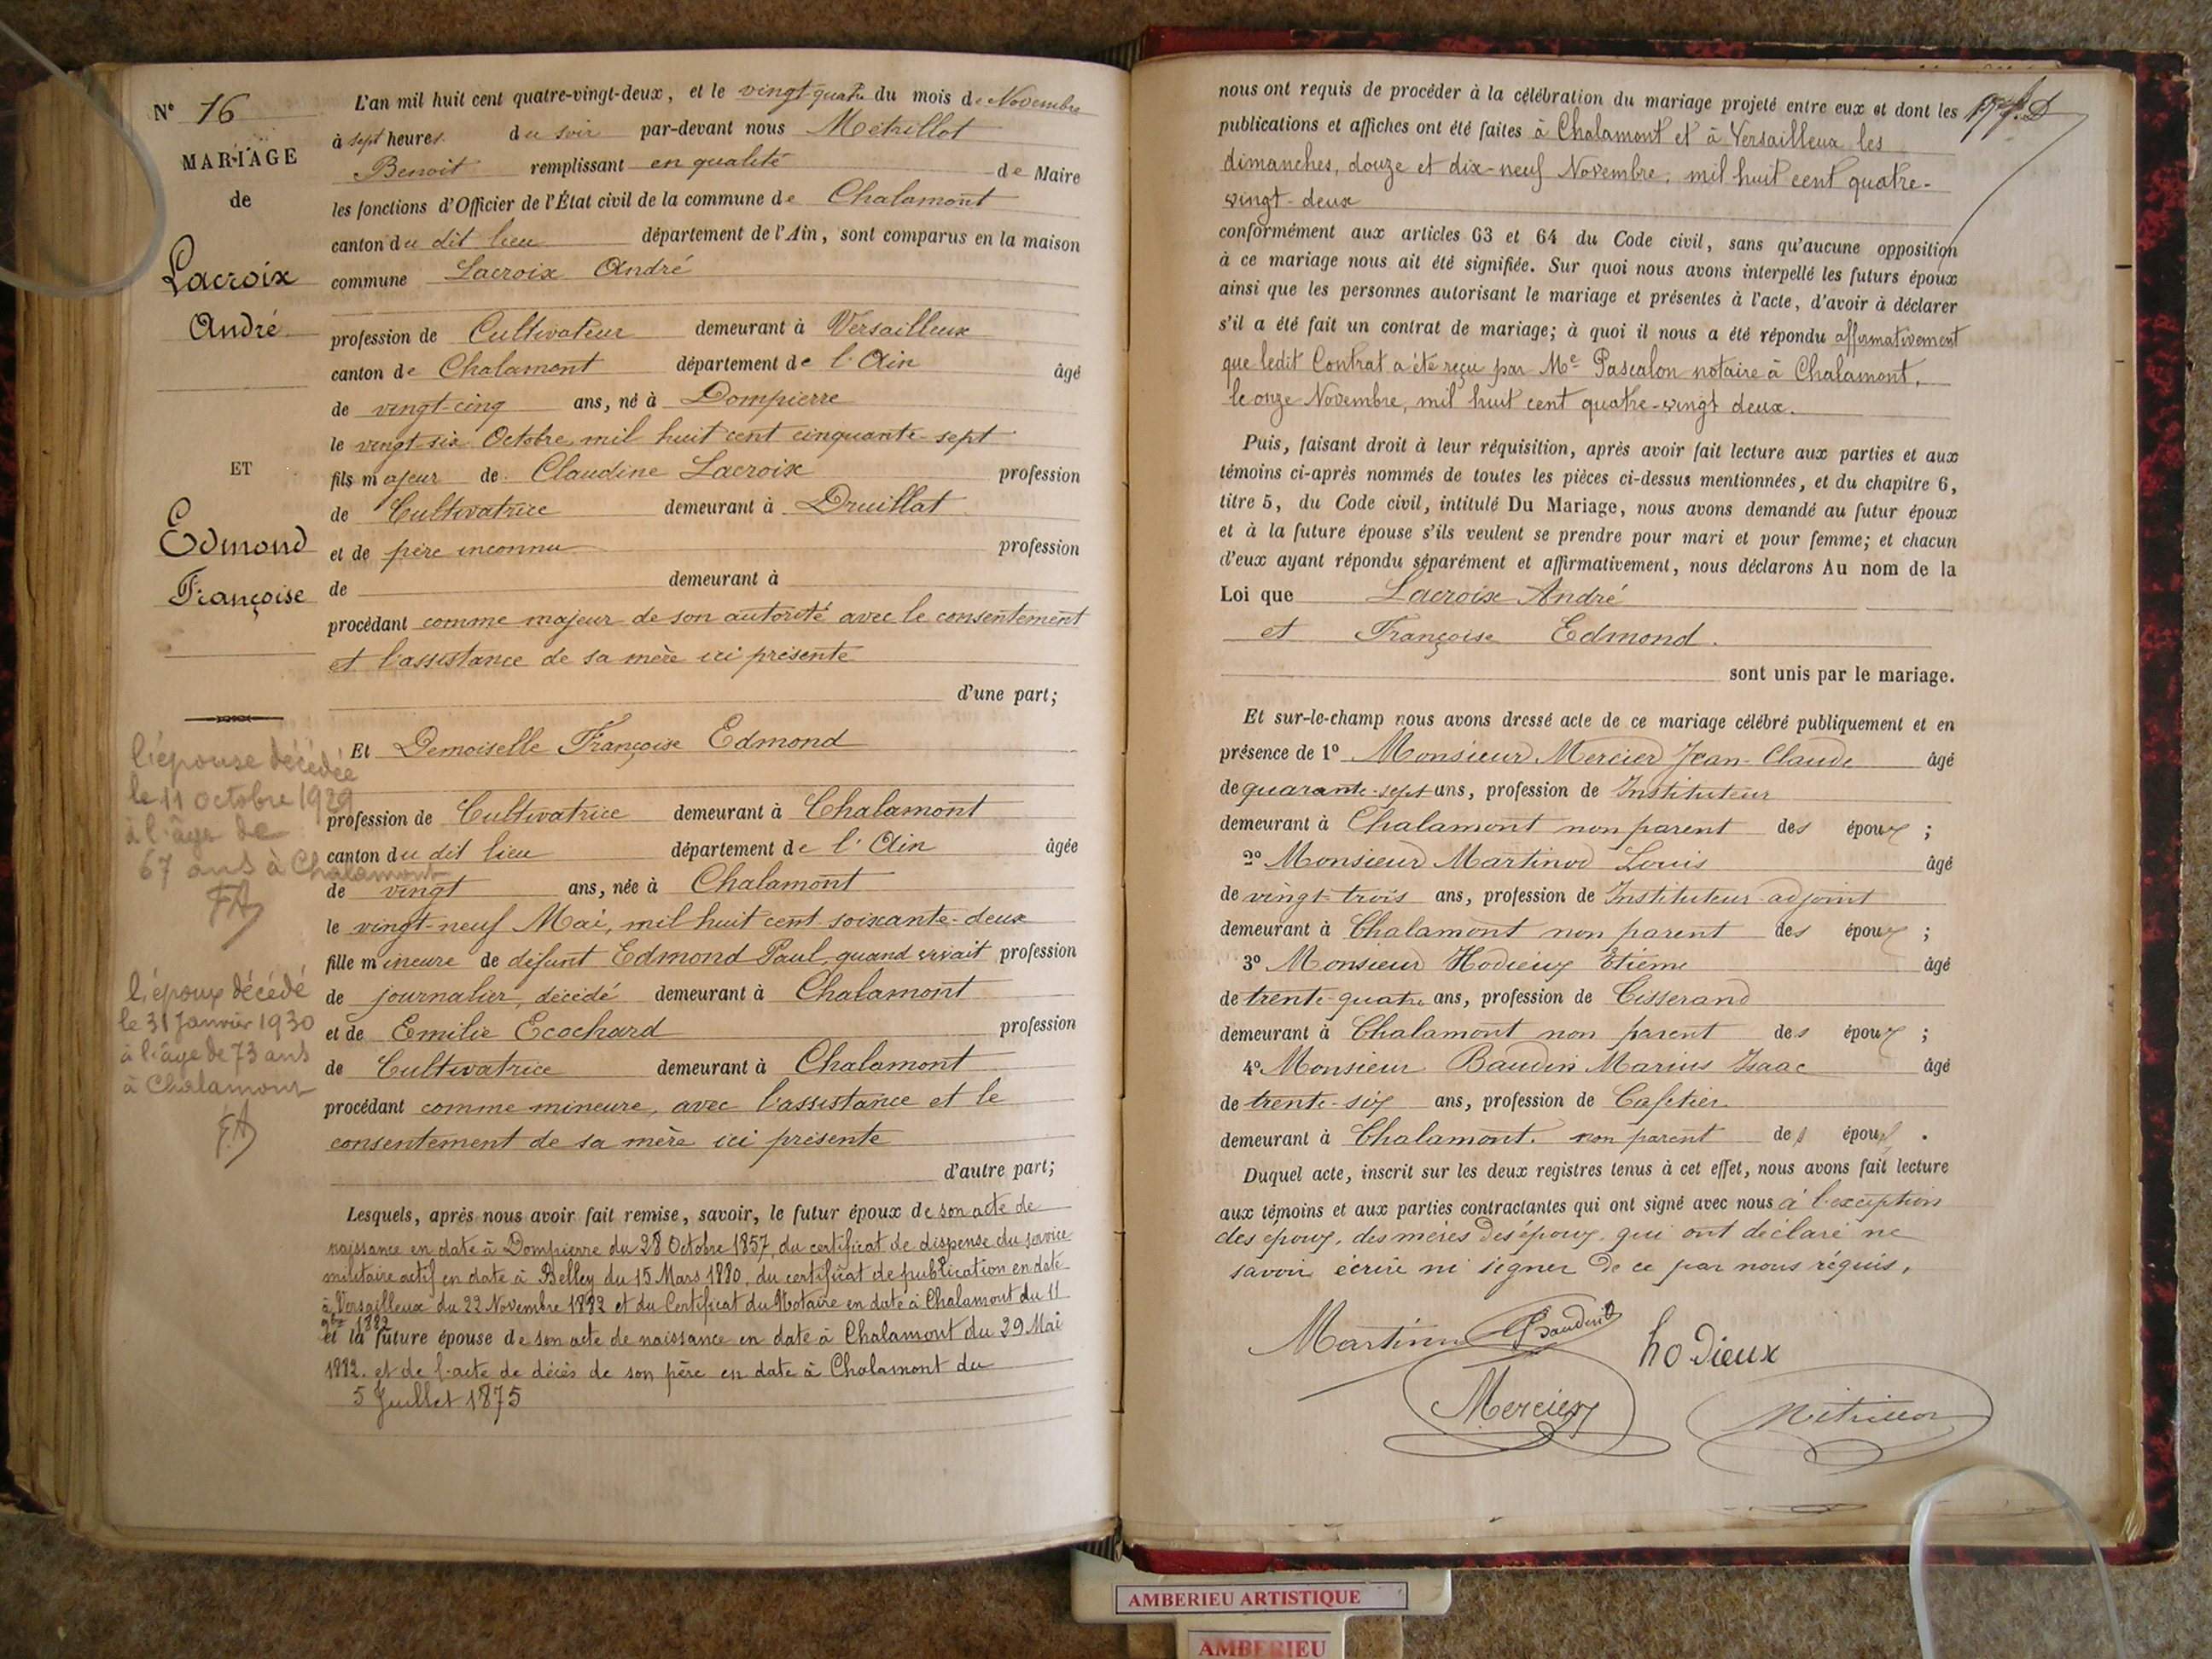 N° 16
MARIAGE
de
Lacroix
André
ET
Edmond
Françoise
l'épouse décédée
le 11 octobre 1929
à l'âge de
67 ans à Chalamont
l'époux décédé
le 31 Janvier 1930
à l'âge de 73 ans
à Chalamont
L'an mil huit cent quatre-vingt-deux, et le vingt-quatre du mois de Novembre
à sept heures du soir par-devant nous Métrillot
Benoit remplissant en qualité de Maire
les fonctions d'Officier de l'État civil de la commune de Chalamont
canton du dit lieu département de l'Ain, sont comparus en la maison
commune Lacroix André
profession de Cultivateur demeurant à Versailleux
canton de Chalamont département de l'Ain âgé
de vingt-cinq ans, né à Dompierre
le vingt-six Octobre, mil huit cent cinquante-sept
fils majeur de Claudine Lacroix profession
de Cultivatrice demeurant à Druillat
et de père inconnu profession
de demeurant à
procédant comme majeur de son autorité avec le consentement
et l'assistance de sa mère ici présente
d'une part;
Et Demoiselle Françoise Edmond
profession de Cultivatrice demeurant à Chalamont
canton du dit lieu département de l'Ain âgée
de vingt ans, née à Chalamont
le vingt-neuf Mai, mil huit cent soixante-deux
fille mineure de défunt Edmond Paul, quand vivait profession
de journalier, décédé demeurant à Chalamont
et de Emilie Ecochard profession
de Cultivatrice demeurant à Chalamont
procédant comme mineure, avec l'assistance et le
consentement de sa mère ici présente
d'autre part;
Lesquels, après nous avoir fait remise, savoir, le futur époux de son acte de
naissance en date à Dompierre du 28 Octobre 1857, du certificat de dispense du service
militaire actif en date à Belley du 15 Mars 1880, du certificat de publication en date
à Versailleux du 22 Novembre 1882 et du Certificat du Notaire en date à Chalamont du 11
9bre 1882
et la future épouse de son acte de naissance en date à Chalamont du 29 Mai
1882. et de l'acte de décès de son père en date à Chalamont du
5 Juillet 1875
nous ont requis de procéder à la célébration du mariage projeté entre eux et dont les
publications et affiches ont été faites à Chalamont et à Versailleux les
dimanches, douze et dix-neuf Novembre, mil huit cent quatre-
vingt-deux
conformément aux articles 63 et 64 du Code civil, sans qu'aucune opposition
à ce mariage nous ait été signifiée. Sur quoi nous avons interpellé les futurs époux
ainsi que les personnes autorisant le mariage et présentes à l'acte, d'avoir à déclarer
s'il a été fait un contrat de mariage; à quoi il nous a été répondu affirmativement
que ledit Contrat a été reçu par Me Pascalon notaire à Chalamont,
le onze Novembre, mil huit cent quatre-vingt deux.
Puis, faisant droit à leur réquisition, après avoir fait lecture aux parties et aux
témoins ci-après nommés de toutes les pièces ci-dessus mentionnées, et du chapitre 6,
titre 5, du Code civil, intitulé Du Mariage, nous avons demandé au futur époux
et à la future épouse s'ils veulent se prendre pour mari et pour femme; et chacun
d'eux ayant répondu séparément et affirmativement, nous déclarons Au nom de la
Loi que Lacroix André
et Françoise Edmond.
sont unis par le mariage.
Et sur-le-champ nous avons dressé acte de ce mariage célébré publiquement et en
présence de 1° Monsieur Mercier Jean-Claude âgé
de quarante-sept ans, profession de Instituteur
demeurant à Chalamont non parent des époux ;
2° Monsieur Martinod Louis âgé
de vingt-trois ans, profession de Instituteur-adjoint
demeurant à Chalamont non parent des époux ;
3° Monsieur Hodieux Etienne âgé
de trente-quatre ans, profession de Tisserand
demeurant à Chalamont non parent des époux ;
4° Monsieur Baudin Marius Isaac âgé
de trente-six ans, profession de Cafetier
demeurant à Chalamont. non parent des époux .
Duquel acte, inscrit sur les deux registres tenus à cet effet, nous avons fait lecture
aux témoins et aux parties contractantes qui ont signé avec nous à l'exception
des époux, des mères des époux qui ont déclaré ne
savoir écrire ni signer de ce par nous réquis.
Martinod Baudin
hodieux
Mercier
Métrillot
AMBERIEU ARTISTIQUE
AMBERIEU